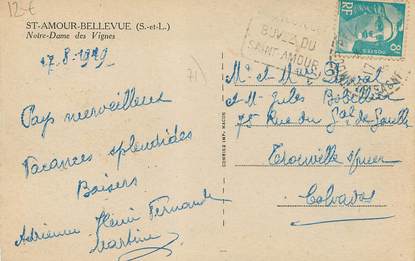 12 €
ST-AMOUR-BELLEVUE (S.-et-L.)
Notre-Dame des Vignes
17.8.1949
71
Pays merveilleux
Vacances splendides
Baisers
Adrienne Henri Fernande
Martine
COMBIER IMP. MACON
BUVEZ DU
SAINT AMOUR
8F
RF
POSTES
Mr et Mme
et M. Jules
75 Rue du Gal de Gaulle
Trouville s/mer
Calvados